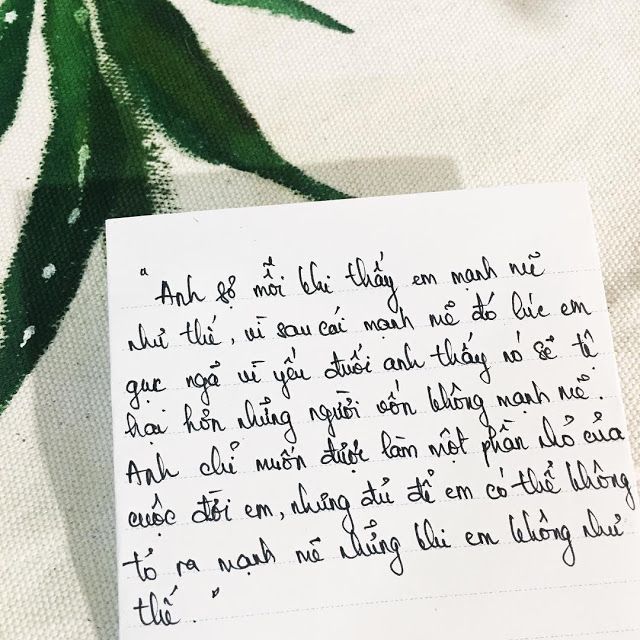 "Anh sợ mỗi khi thấy em mạnh mẽ
như thế, vì sau cái mạnh mẽ đó lúc em
gục ngã vì yếu đuối anh thấy nó sẽ tệ
hại hơn những người vốn không mạnh mẽ.
Anh chỉ muốn được làm một phần nhỏ của
cuộc đời em, nhưng đủ để em có thể không
tỏ ra mạnh mẽ những khi em không như
thế."